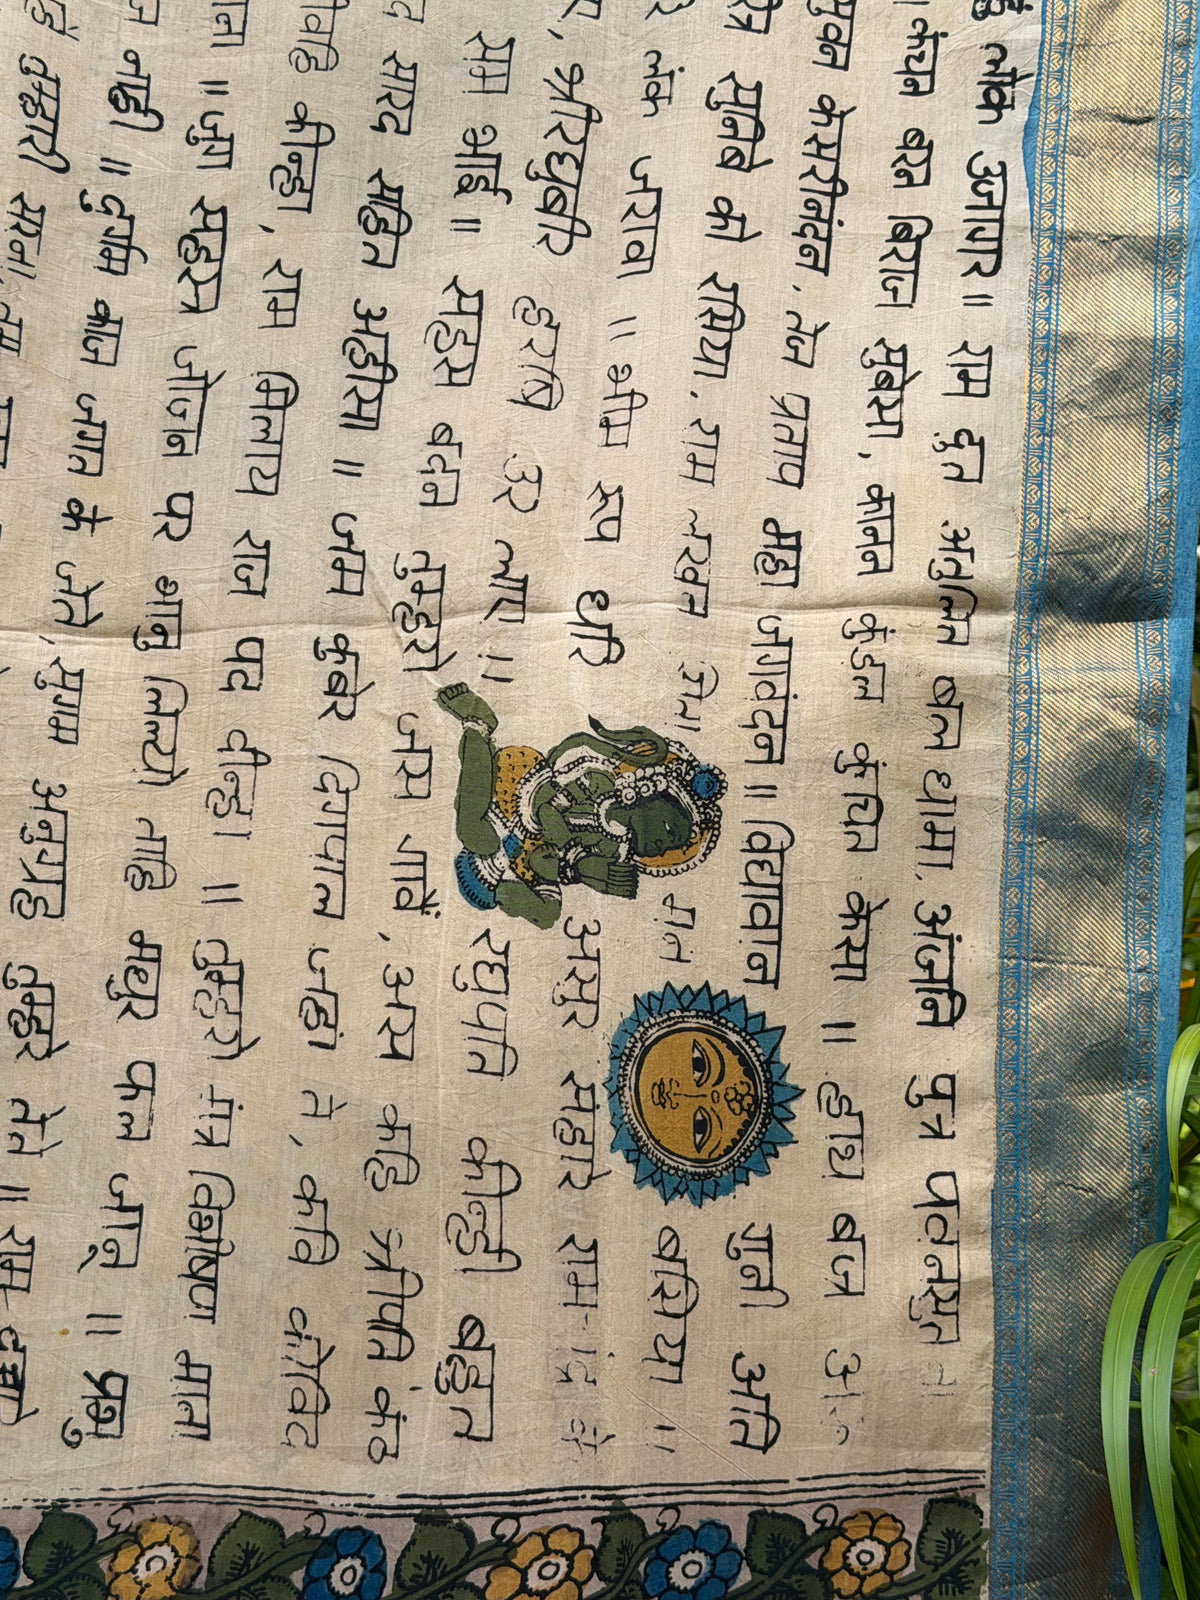 लोक उजागर॥ राम दूत अतुलित बल धामा, अंजनि पुत्र पवनसुत
कंचन बरन बिराज सुबेसा, कानन कुंडल कुंचित केसा ॥ हाथ बज्र
सुवन केसरीनंदन, तेज प्रताप महा जगवंदन॥ विद्यावान गुनी अति
सुनिबे को रसिया, राम लखन सीता मन बसिया ॥
लंक जरावा ॥ भीम रूप धरि असुर संहारे राम के
, श्रीरघुबीर हरषि उर लाए॥ रघुपति कीन्ही बहुत
सम भाई॥ सहस बदन तुम्हरो जस गावैं, अस कहि श्रीपति कंठ
सारद सहित अहीसा ॥ जम कुबेर दिगपाल जहां ते, कवि कोविद
कीन्हा, राम मिलाय राज पद दीन्हा ॥ तुम्हरो मंत्र विभीषण माना
॥ जुग सहस्त्र जोजन पर भानु लिल्यो ताहि मधुर फल जानू ॥ प्रभु
नाहीं ॥ दुर्गम काज जगत के जेते, सुगम अनुग्रह तुम्हरे तेते ॥ राम दुआरे
तुम्हारी सरना,